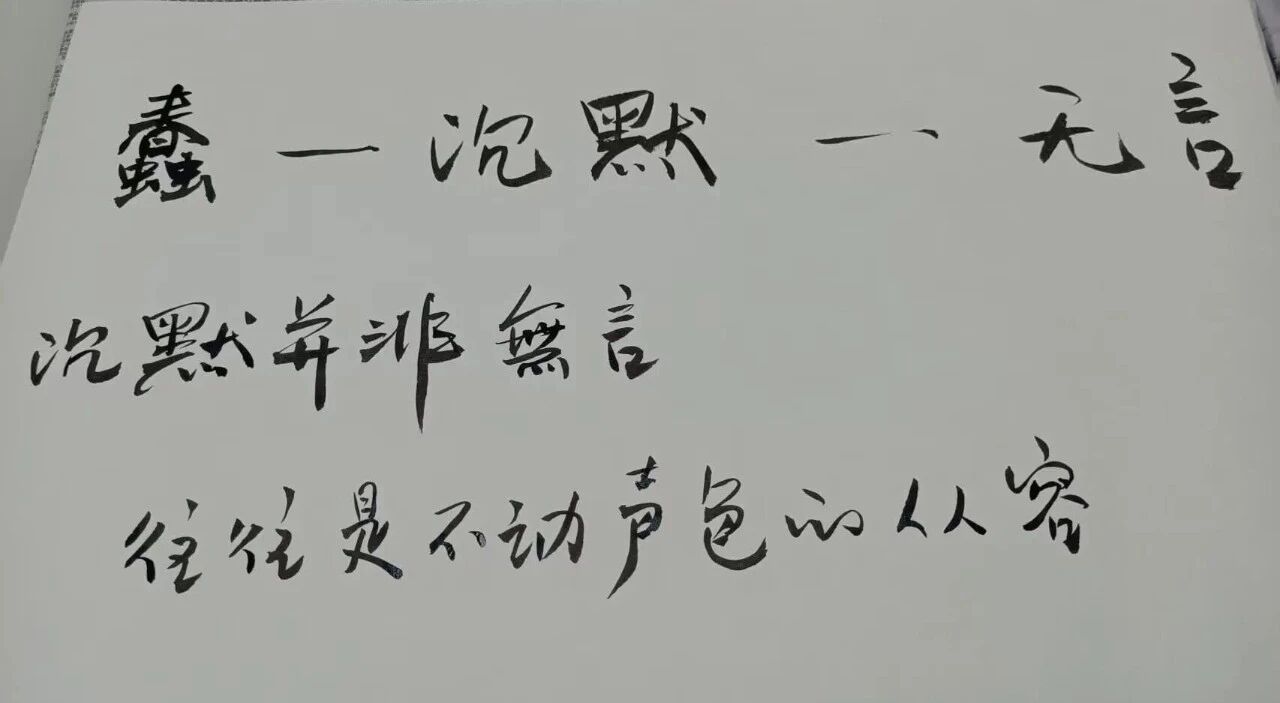 蠢一沉默一、无言
沉默并非無言
往往是不动声色的从容